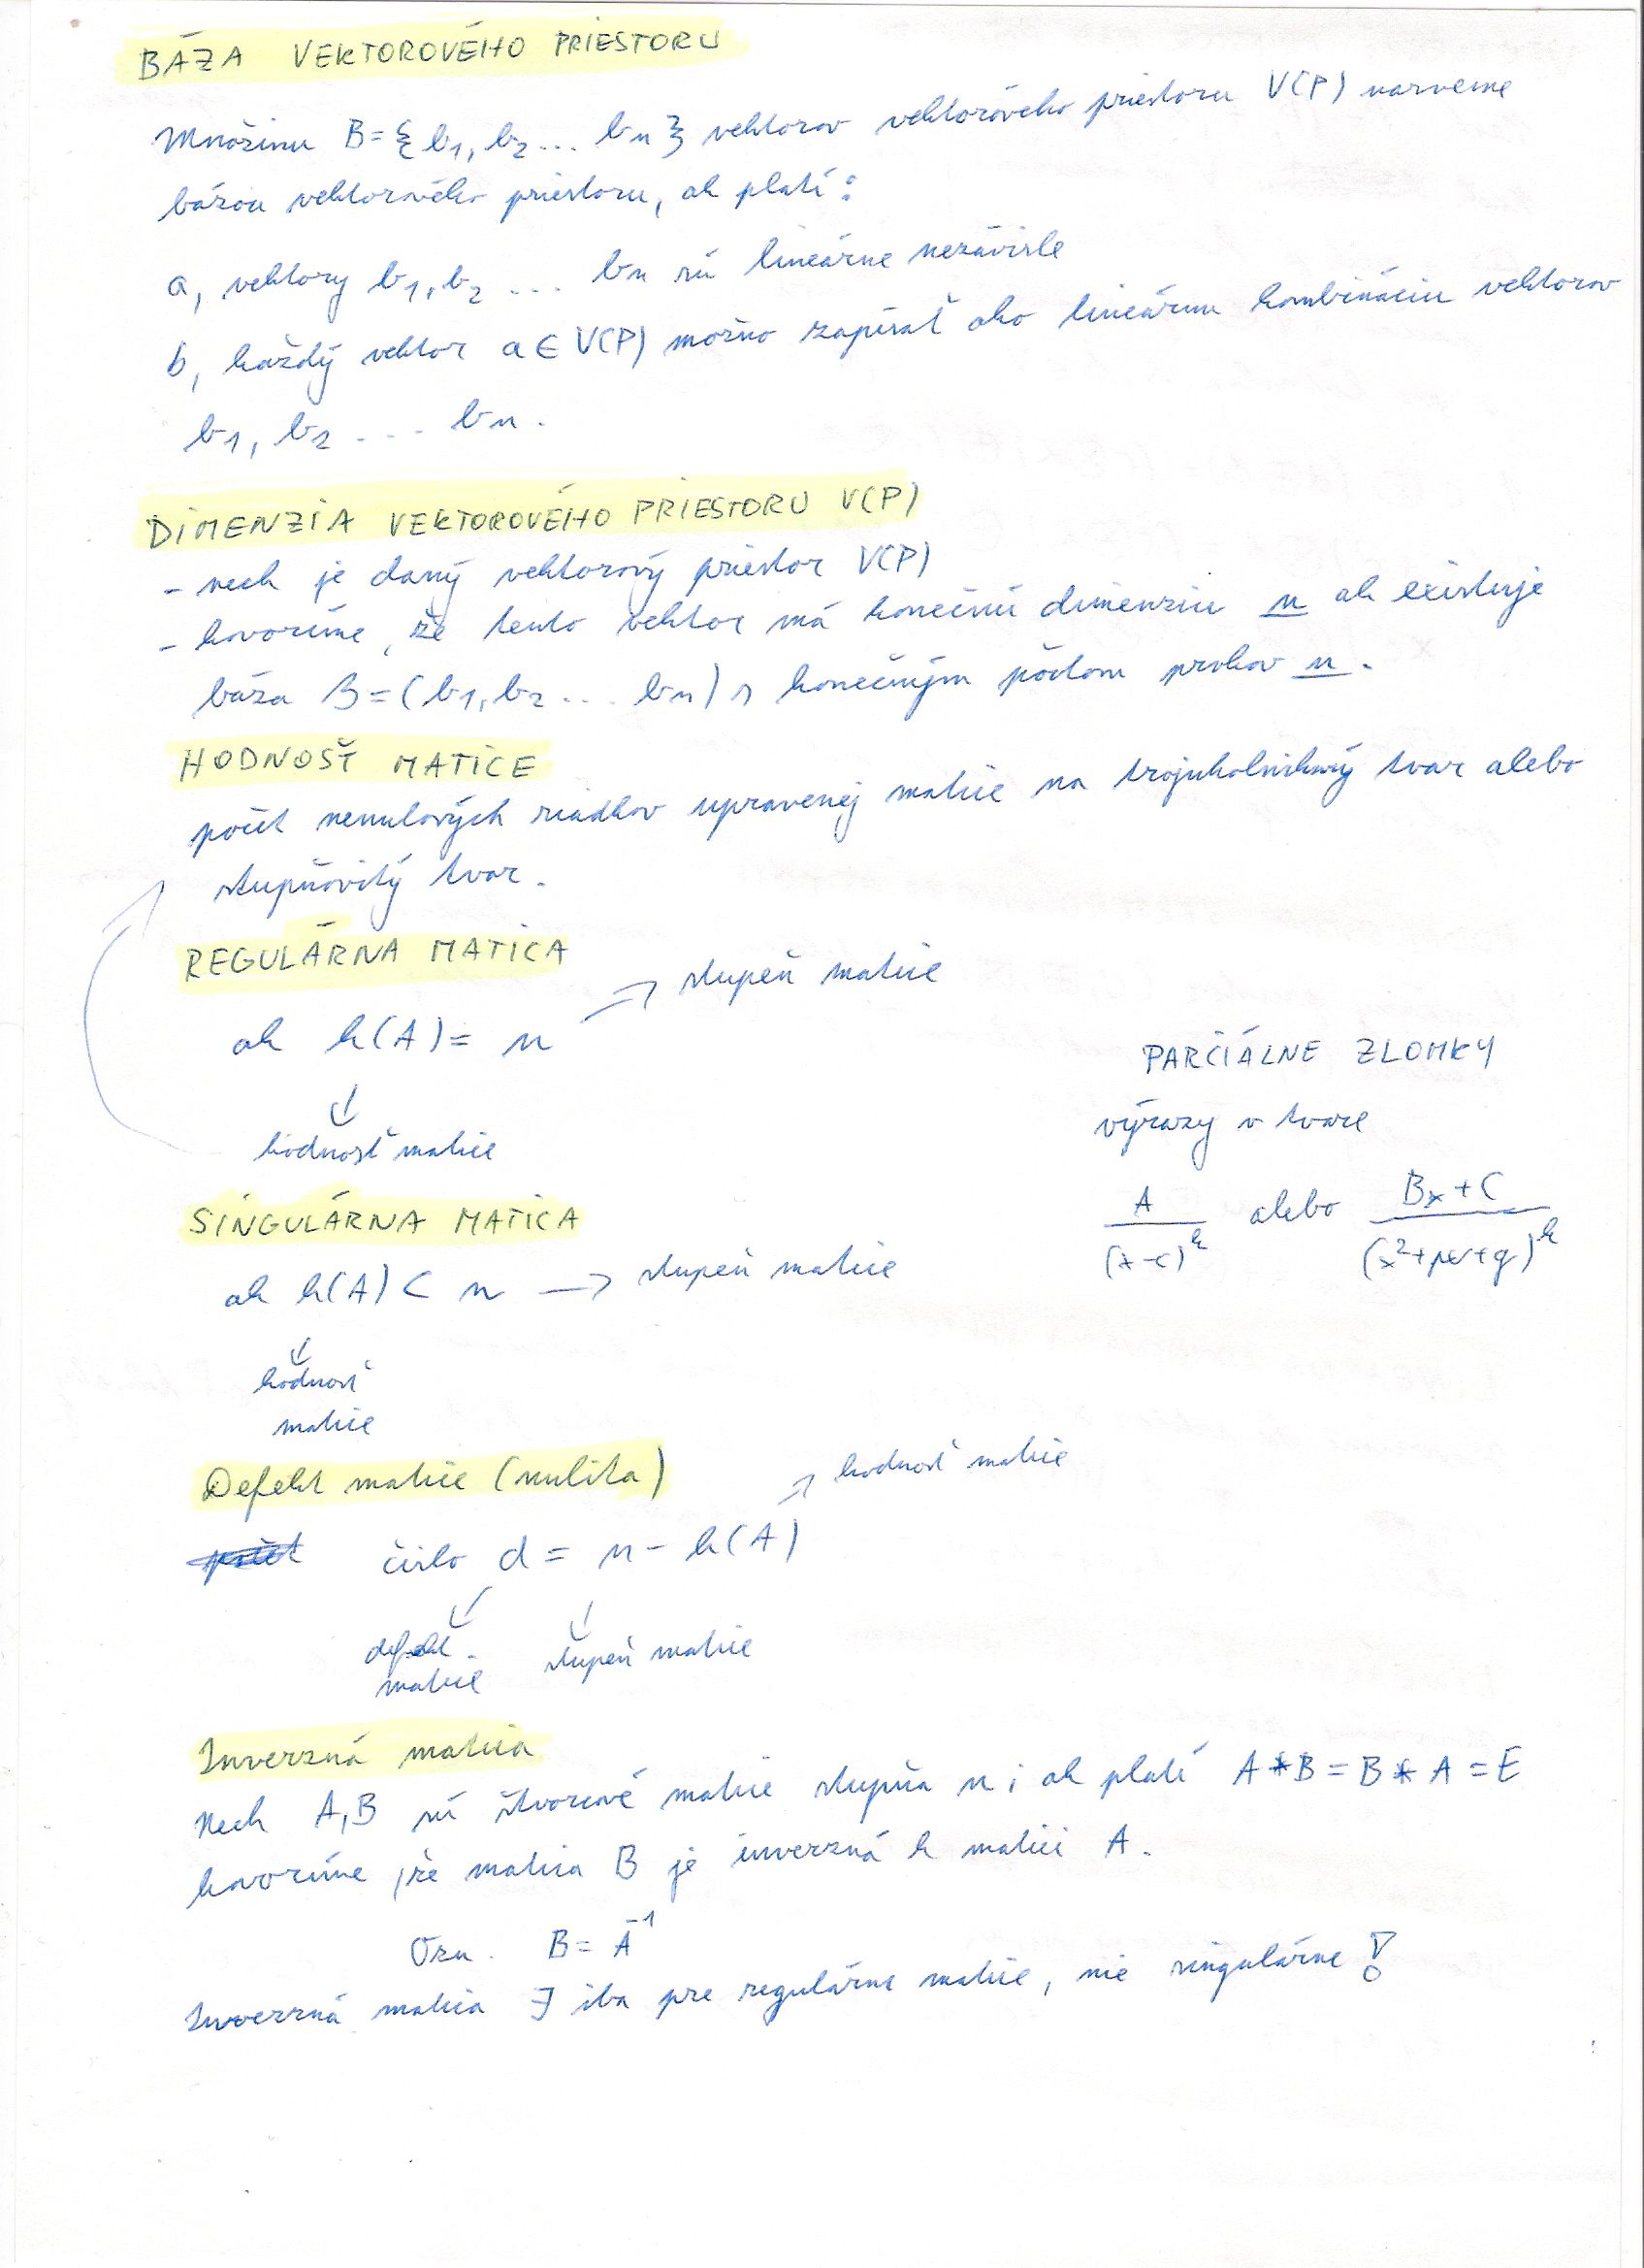 BÁZA VEKTOROVÉHO PRIESTORU
Množinu B={b1, b2 ... bn} vektorov vektorového priestoru V(P) nazveme
bázou vektorového priestoru, ak platí:
a, vektory b1, b2 ... bn sú lineárne nezávisle
b, každý vektor a ∈ V(P) možno zapísať ako lineárnu kombináciu vektorov
b1, b2 ... bn.
DIMENZIA VEKTOROVÉHO PRIESTORU V(P)
- nech je daný vektorový priestor V(P)
- hovoríme, že tento vektor má konečnú dimenziu n ak existuje
báza B=(b1, b2 ... bn) s konečným počtom prvkov n.
HODNOSŤ MATICE
počet nenulových riadkov upravenej matice na trojuholníkový tvar alebo
stupňovitý tvar.
REGULÁRNA MATICA
→ stupeň matice
ak h(A) = n
↓
hodnosť matice
PARCIÁLNE ZLOMKY
výrazy v tvare
A/(x-c)^k alebo Bx+C/(x²+px+q)^k
SINGULÁRNA MATICA
ak h(A) < n → stupeň matice
↓
hodnosť
matice
Defekt matice (nulita)
→ hodnosť matice
číslo d = n - h(A)
↓ ↓
defekt stupeň matice
matice
Inverzná matica
Nech A,B sú štvorcové matice stupňa n; ak platí A*B = B*A = E
hovoríme, že matica B je inverzná k matici A.
Ozn. B = A⁻¹
Inverzná matica ∃ iba pre regulárne matice, nie singulárne!